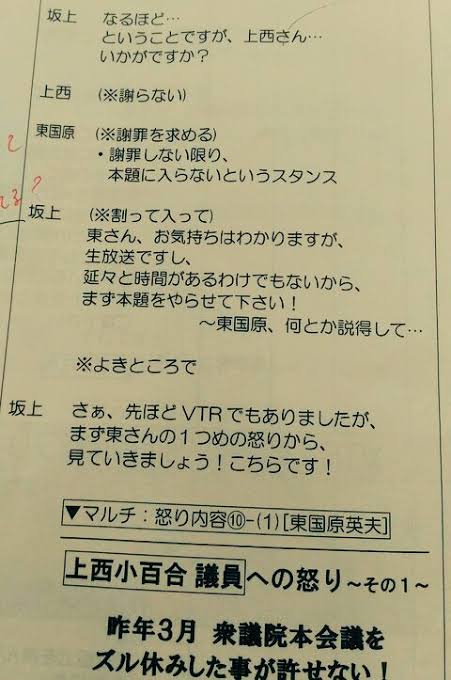 坂上 なるほど…
ということですが、上西さん…
いかがですか？
上西 (※謝らない)
東国原 (※謝罪を求める)
・謝罪しない限り、
本題に入らないというスタンス
坂上 (※割って入って)
東さん、お気持ちはわかりますが、
生放送ですし、
延々と時間があるわけでもないから、
まず本題をやらせて下さい！
～東国原、何とか説得して…
※よきところで
坂上 さぁ、先ほどVTRでもありましたが、
まず東さんの1つめの怒りから、
見ていきましょう！こちらです！
▼マルチ：怒り内容⑩-(1)[東国原英夫]
上西小百合 議員への怒り～その1～
昨年3月 衆議院本会議を
ズル休みした事が許せない！